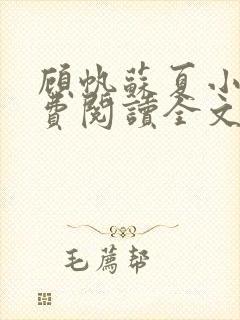 顾帆蘇夏小
費閱讀全文
毛薦幇